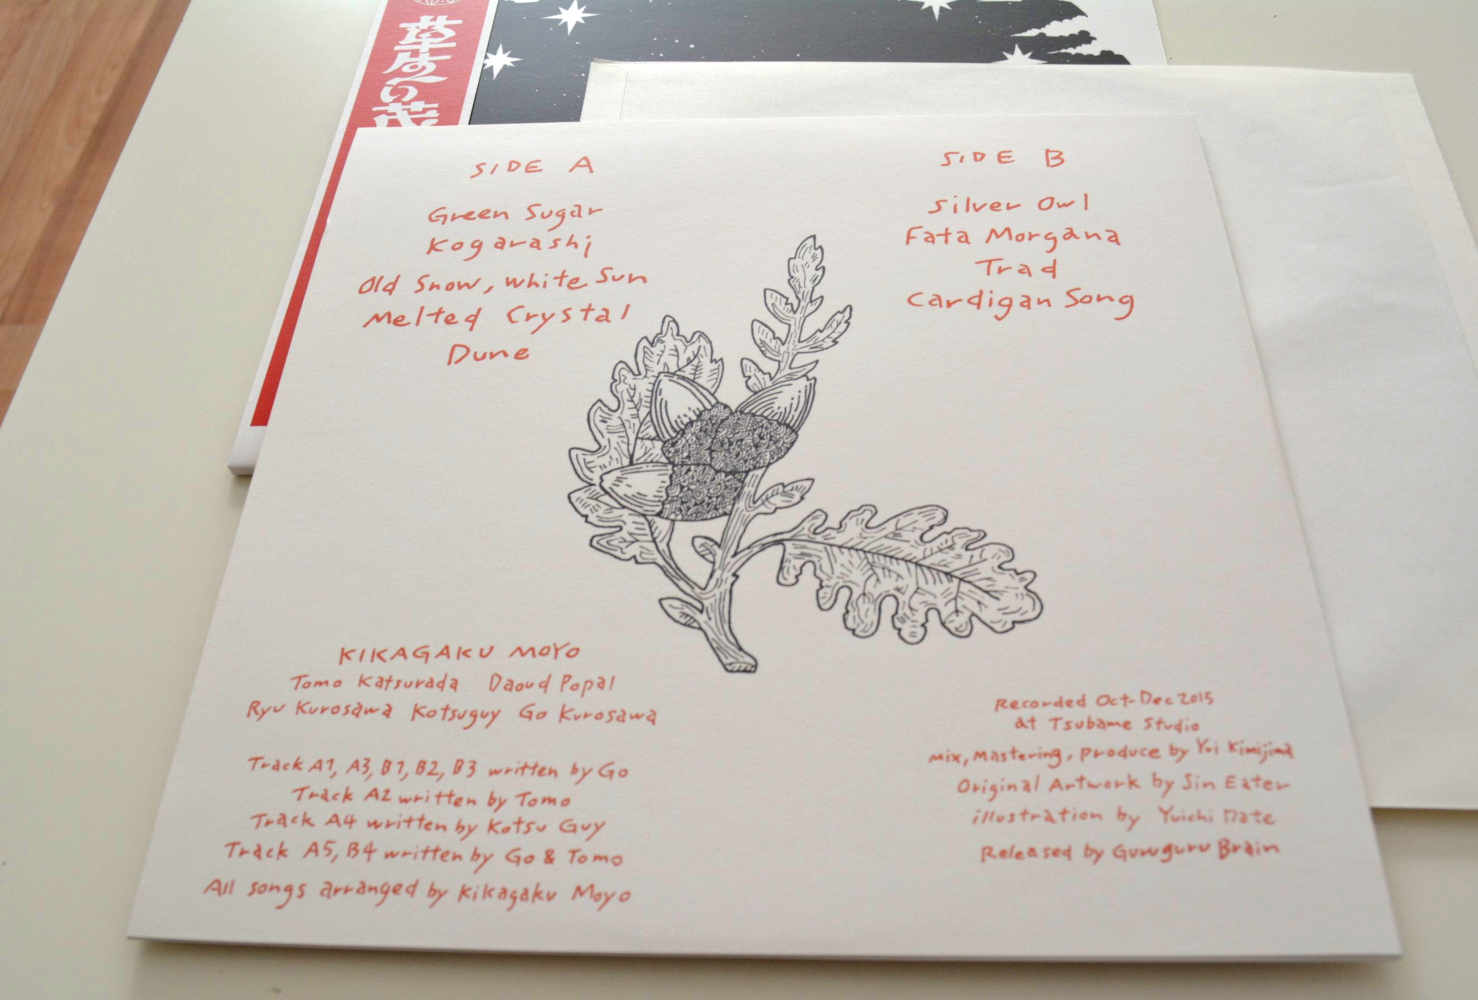 草木の茂
SIDE A
Green Sugar
Kogarashi
Old Snow, White Sun
Melted Crystal
Dune
SIDE B
Silver Owl
Fata Morgana
Trad
Cardigan Song
KIKAGAKU MOYO
Tomo Katsurada Daoud Popal
Ryu Kurosawa Kotsuguy Go Kurosawa
Track A1, A3, B1, B2, B3 written by Go
Track A2 written by Tomo
Track A4 written by Kotsu Guy
Track A5, B4 written by Go & Tomo
All songs arranged by Kikagaku Moyo
Recorded Oct-Dec 2015
at Tsubame Studio
Mix, Mastering, produce by Yui Kimijima
Original Artwork by Sin Eater
illustration by Yuichi Date
Released by Guruguru Brain